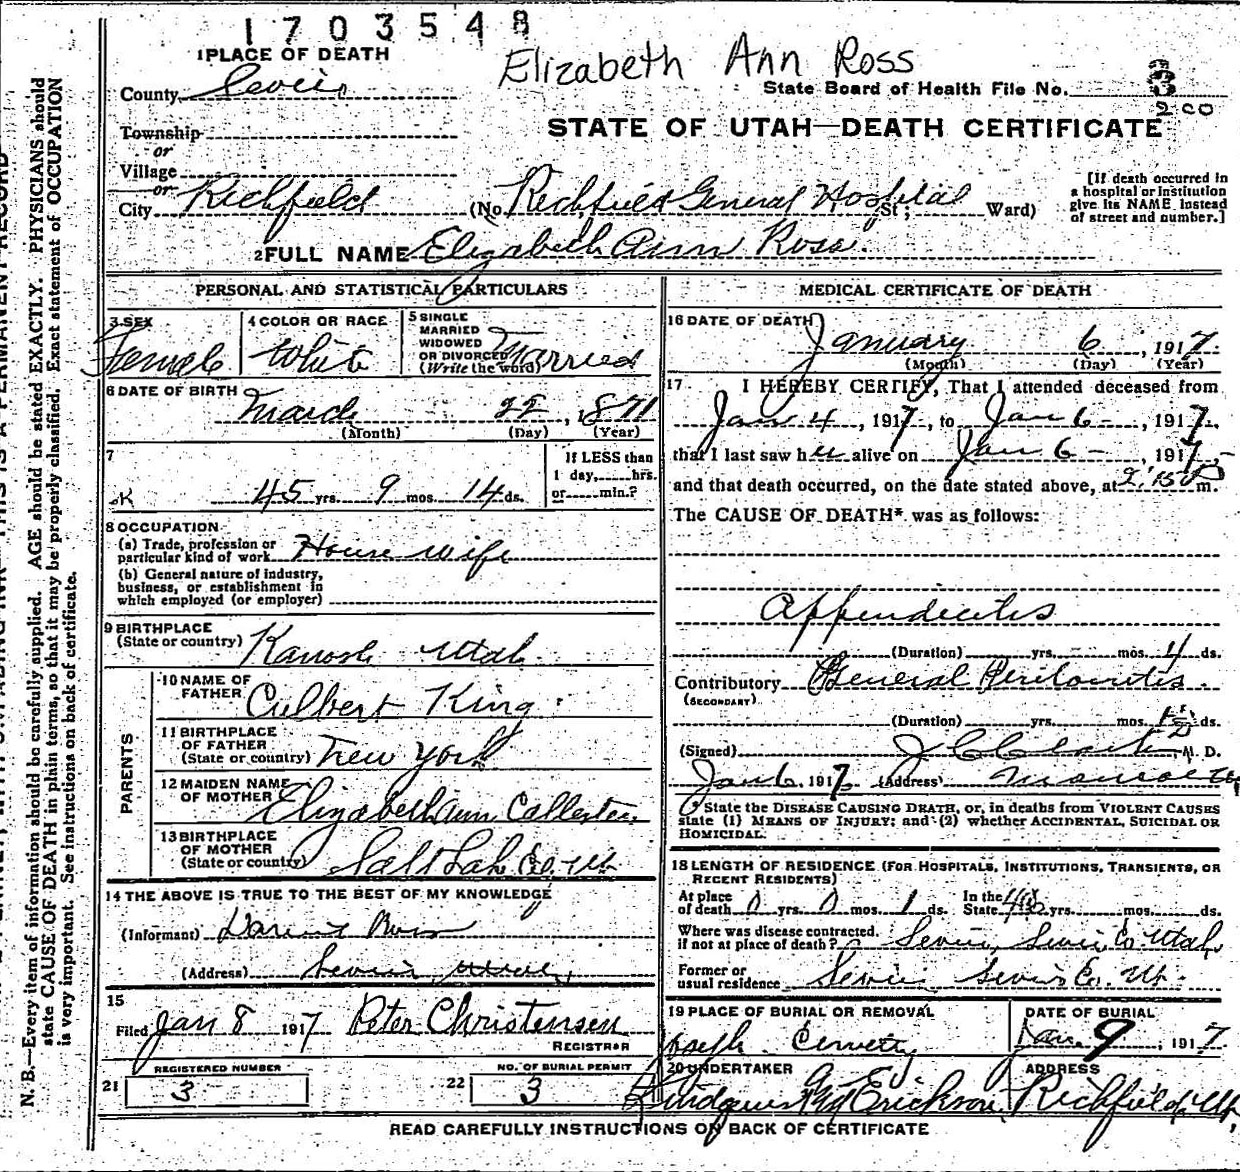 1703548
Elizabeth Ann Ross
1 PLACE OF DEATH
County Sevier
State Board of Health File No. 3
200
STATE OF UTAH—DEATH CERTIFICATE
Township
or
Village
or
City Richfield (No. Richfield General Hospital St; Ward)
[If death occurred in a hospital or institution give its NAME instead of street and number.]
2 FULL NAME Elizabeth Ann Ross.
PERSONAL AND STATISTICAL PARTICULARS
3 SEX Female
4 COLOR OR RACE White
5 SINGLE MARRIED WIDOWED OR DIVORCED (Write the word) Married
6 DATE OF BIRTH March 22, 1871
(Month) (Day) (Year)
7
45 yrs. 9 mos. 14 ds.
If LESS than 1 day, hrs. or min.?
8 OCCUPATION
(a) Trade, profession or particular kind of work House wife
(b) General nature of industry, business, or establishment in which employed (or employer)
9 BIRTHPLACE (State or country) Kanosh Utah
PARENTS
10 NAME OF FATHER Culbert King
11 BIRTHPLACE OF FATHER (State or country) New York
12 MAIDEN NAME OF MOTHER Elizabeth Ann Callester
13 BIRTHPLACE OF MOTHER (State or country) Salt Lake Co. Ut.
14 THE ABOVE IS TRUE TO THE BEST OF MY KNOWLEDGE
(Informant) Darius Ross
(Address) Sevier Utah,
15
Filed Jan 8 1917 Peter Christensen
REGISTRAR
21 REGISTERED NUMBER 3
22 NO. OF BURIAL PERMIT 3
MEDICAL CERTIFICATE OF DEATH
16 DATE OF DEATH January 6, 1917
(Month) (Day) (Year)
17 I HEREBY CERTIFY, That I attended deceased from
Jan 4, 1917, to Jan 6, 1917,
that I last saw her alive on Jan 6, 1917,
and that death occurred, on the date stated above, at m.
The CAUSE OF DEATH* was as follows:
Appendicitis
(Duration) yrs. mos. 4 ds.
Contributory General Peritonitis.
(SECONDARY)
(Duration) yrs. mos. ds.
(Signed) M. D.
Jan 6, 1917 (Address) Monroe
State the DISEASE CAUSING DEATH, or, in deaths from VIOLENT CAUSES state (1) MEANS OF INJURY; and (2) whether ACCIDENTAL, SUICIDAL OR HOMICIDAL.
18 LENGTH OF RESIDENCE (FOR HOSPITALS, INSTITUTIONS, TRANSIENTS, OR RECENT RESIDENTS)
At place of death 0 yrs. 0 mos. 1 ds. In the State yrs. mos. ds.
Where was disease contracted, if not at place of death? Sevier, Sevier Co Utah
Former or usual residence Sevier Sevier Co. Ut.
19 PLACE OF BURIAL OR REMOVAL Joseph Cemetery
DATE OF BURIAL Jan. 9, 1917
20 UNDERTAKER Erickson
ADDRESS Richfield, Ut,
READ CAREFULLY INSTRUCTIONS ON BACK OF CERTIFICATE
N. B.—Every item of information should be carefully supplied. AGE should be stated EXACTLY. PHYSICIANS should
state CAUSE OF DEATH in plain terms, so that it may be properly classified. Exact statement of OCCUPATION
is very important. See instructions on back of certificate.